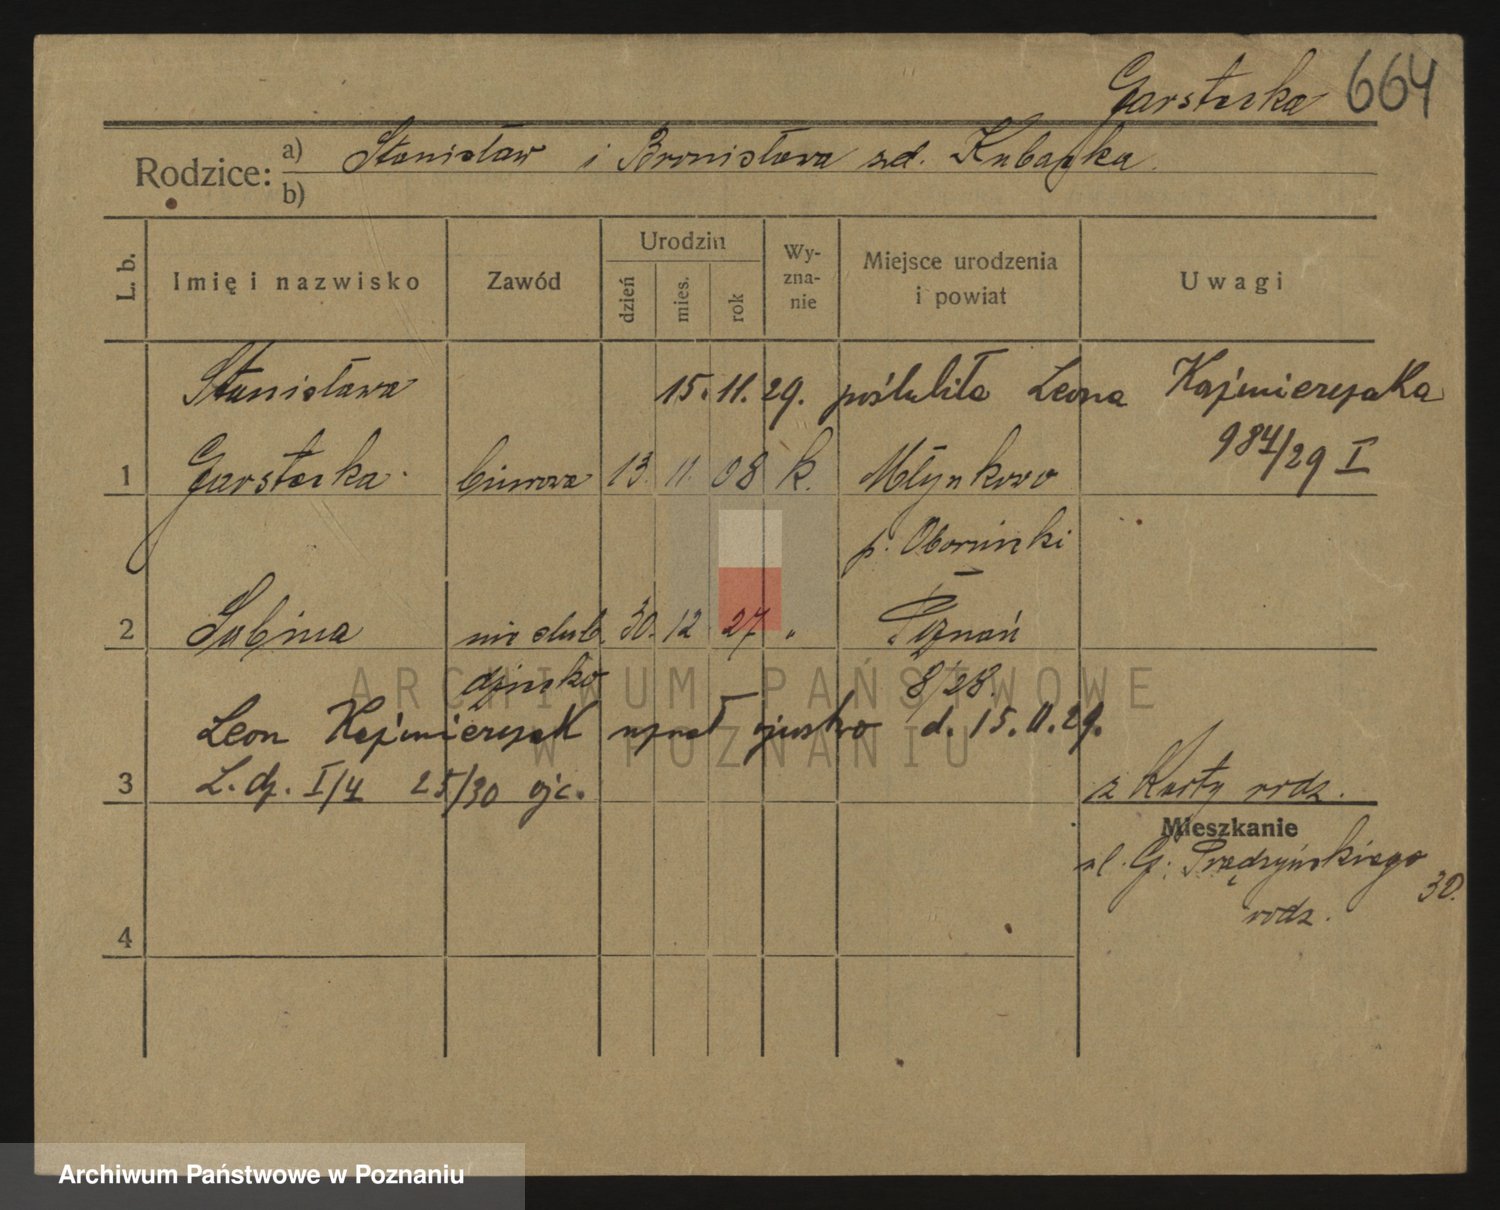 Garstecka 664
Rodzice: a) Stanisław i Bronisława zd. Kubacka.
b)
L. b. Imię i nazwisko Zawód Urodzin dzień mies. rok Wy-zna-nie Miejsce urodzenia i powiat Uwagi
Stanisława 15.11.29. poślubiła Leona Kaźmierczaka
984/29 I
1 Garstecka biurowa 13. 11. 08 k. Młynkowo
p. Obornicki
2 Sabina nie ślub. 30. 12. 27 „ Poznań
dziecko 8/28.
Leon Kaźmierczak uznał ojcostwo d. 15.11.29.
3 L. dz. I/4 25/30 ojc.
z Karty rodz.
Mieszkanie
ul. G. Prądzyńskiego 30.
rodz.
4
ARCHIWUM PAŃSTWOWE
W POZNANIU
Archiwum Państwowe w Poznaniu